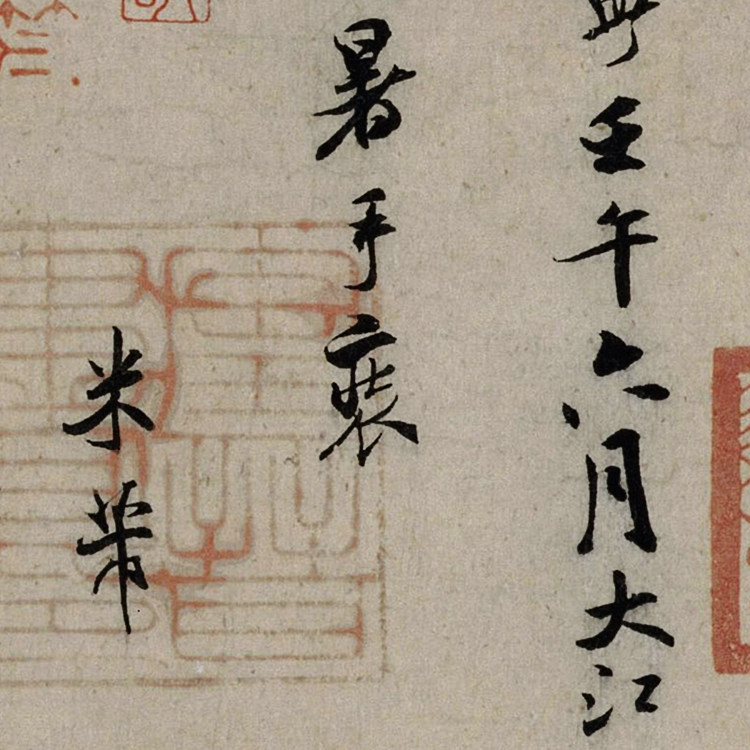 壬午六月大江
暑手裝
米芾